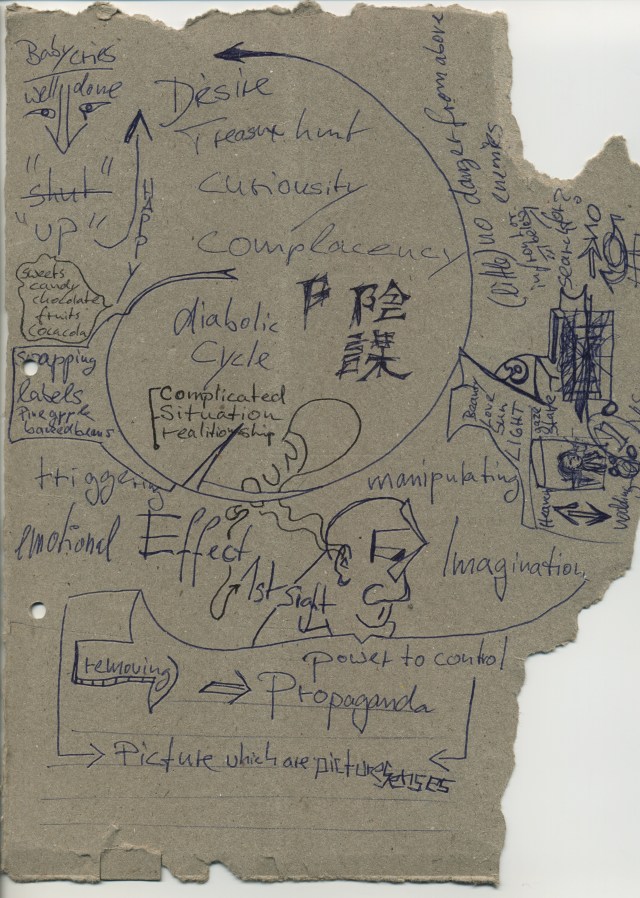 Baby cries
well done
"shut"
"UP"
HAPPY
sweets
candy
chocolate
fruits
cocacola
swapping
labels
Pineapple
baked beans
Désire
Treasure hunt
Curiousity
Complacency
(little) no danger from above
enemies
diabolic
Cycle
陰
謀
Complicated
Situation
realitionship
Beauty
Love
Sun
LIGHT
Heaven
triggering
manipulating
emotional Effect
1st Sight
Imagination
power to control
removing
Propaganda
Picture which are picture
senses